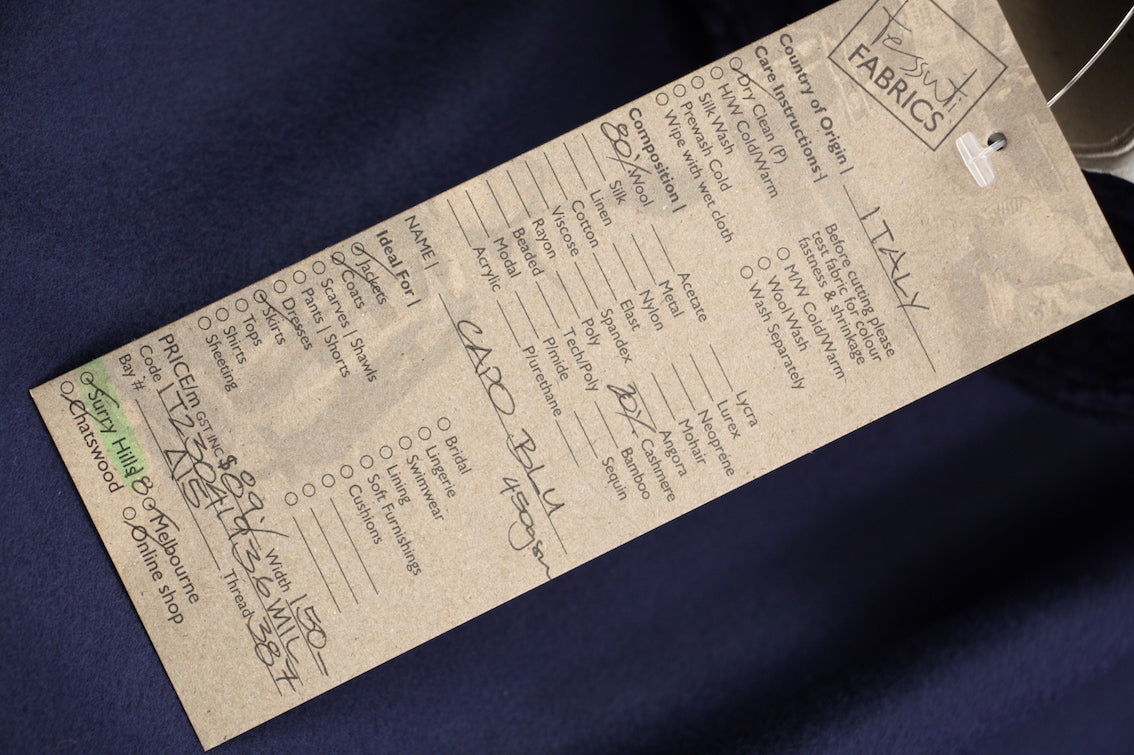 Tessuti
FABRICS
Country of Origin | ITALY
Care Instructions |
Dry Clean (P)
H/W Cold/Warm
Silk Wash
Prewash Cold
Wipe with wet cloth
Before cutting please
test fabric for colour
fastness & shrinkage
M/W Cold/Warm
Wool Wash
Wash Separately
Composition |
80% Wool
Silk
Linen
Cotton
Viscose
Rayon
Beaded
Modal
Acrylic
Acetate
Metal
Nylon
Elast
Spandex
Poly
Tech/Poly
P/mide
P/urethane
Lycra
Lurex
Neoprene
Mohair
Angora
20% Cashmere
Bamboo
Sequin
NAME | CAPO BLU
450gsm
Ideal For |
Jackets
Coats
Scarves | Shawls
Pants | Shorts
Dresses
Skirts
Tops
Shirts
Sheeting
Bridal
Lingerie
Swimwear
Lining
Soft Furnishings
Cushions
PRICE/m GST INC $89% Width 150
Code | T23041936 Thread 387
Bay # A15
Surry Hills 18 Melbourne
Chatswood Online shop